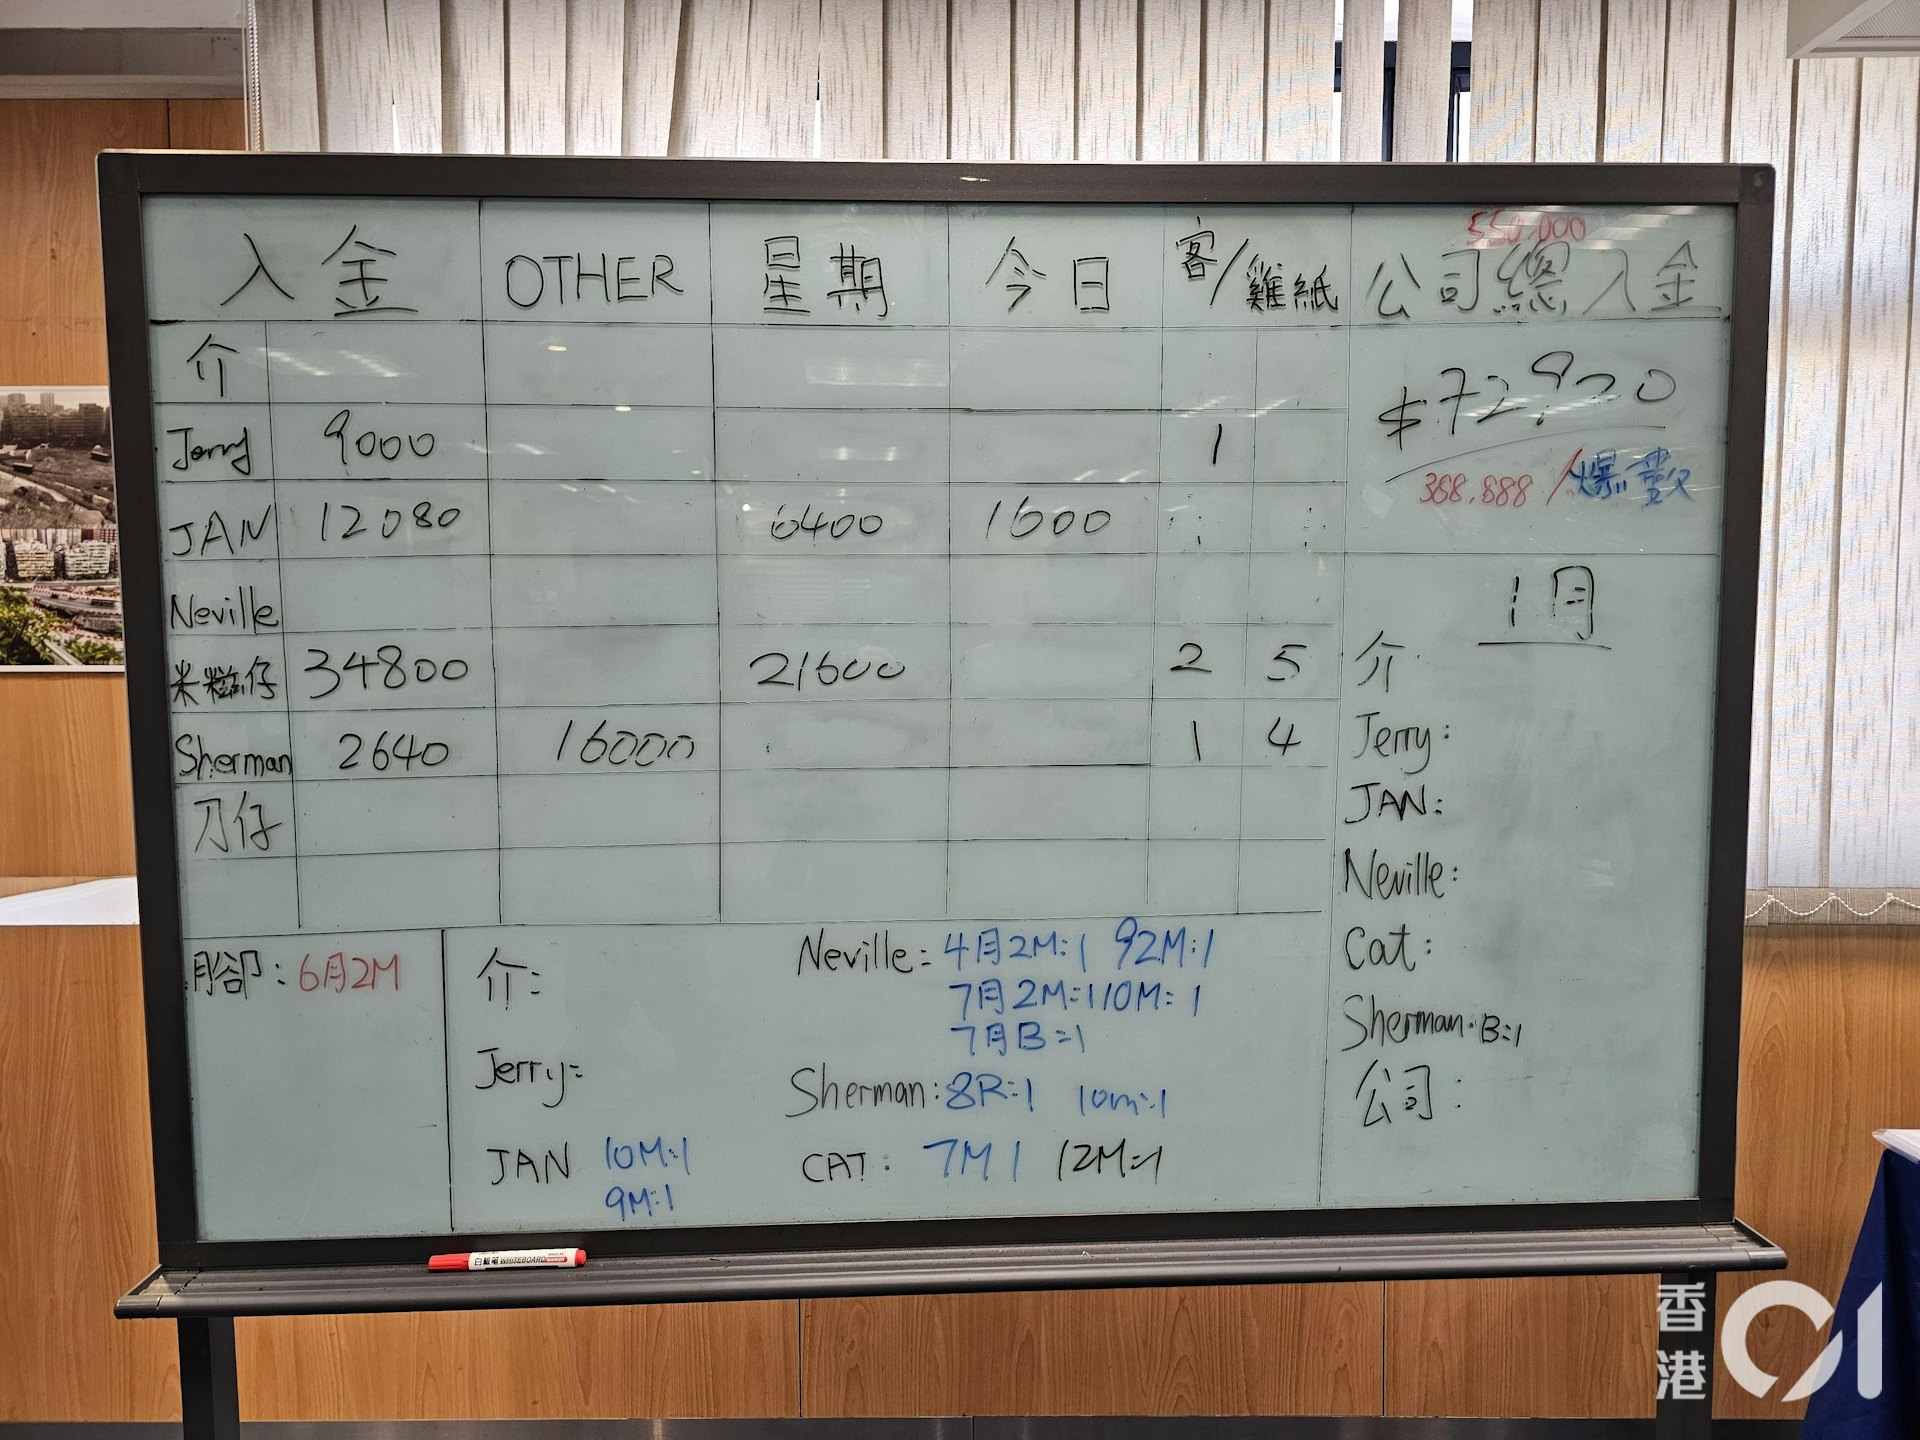 550,000
入金 OTHER 星期 今日 客/雞紙 公司總入金
介
Jerry 9000 1
JAN 12080 6400 1600
Neville
米糍仔 34800 21600 2 5
Sherman 2640 16000 1 4
刀仔
$72,920
388,888/爆數
1月
介
Jerry:
JAN:
Neville:
Cat:
Sherman: B:1
公司:
腳: 6月2M
介:
Jerry:
JAN 10M:1
9M:1
Neville: 4月2M:1 92M:1
7月2M:1 10M:1
7月B:1
Sherman: 8R:1 10m:1
CAT: 7M 1 12M:1
白板笔 WHITEBOARD
香港01